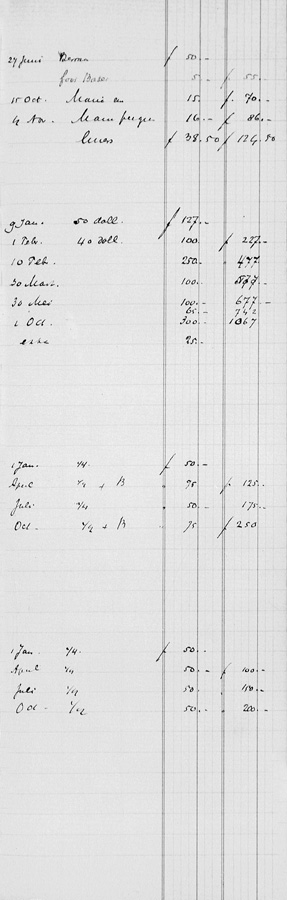 27 Juni Berna f 50.-
5.- f 55.-
15 Oct. Marie en 15. f. 70.-
4 Nov. 16.- f 86.-
f 38.50 f 124.50
9 Jan. 50 doll. f 127.-
1 Febr. 40 doll. 100. f 227.-
10 Feb. 250.- 477.
30 Maart. 100.-
30 Mei 100.- 677.-
65.- 742
1 Oct. 300.- 1067
extra 25.-
1 Jan. 1/4. f 50.-
April 75 f 125.-
Juli 1/4 50.- 175.-
Oct. 75 f 250
1 Jan. 1/4. f 50.-
April 1/4 50.- f 100.-
Juli 1/4 50. 150.-
Oct. 50.- 200.-